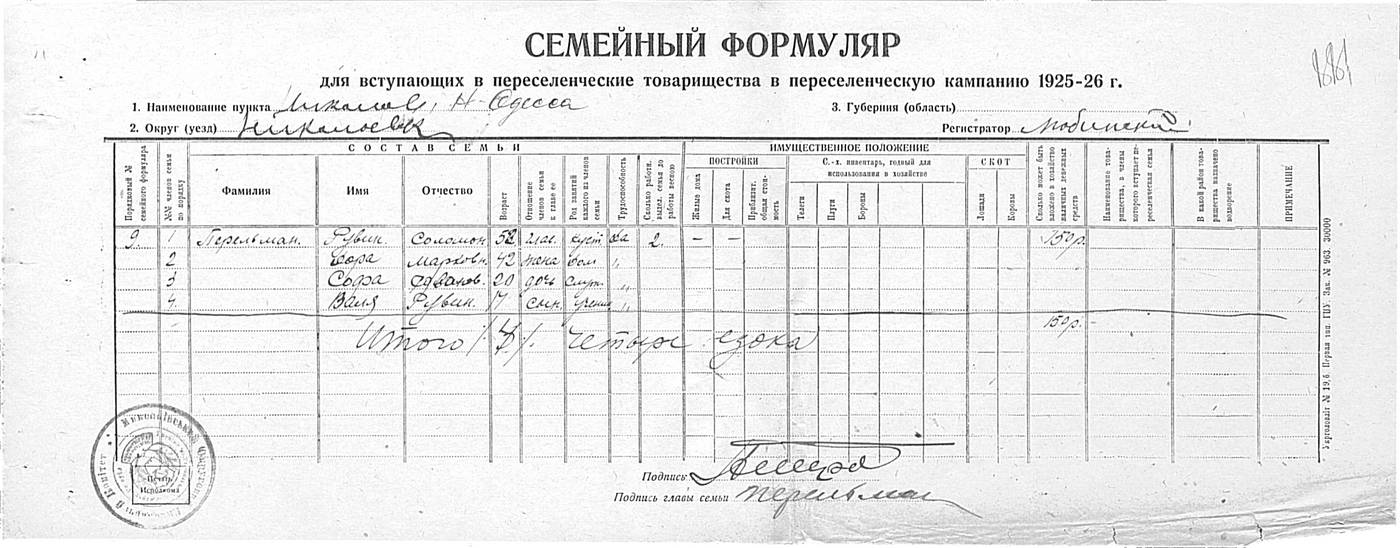 СЕМЕЙНЫЙ ФОРМУЛЯР
для вступающих в переселенческие товарищества в переселенческую кампанию 1925-26 г.
1. Наименование пункта Одесса
3. Губерния (область)
2. Округ (уезд)
Регистратор
СОСТАВ СЕМЬИ
ИМУЩЕСТВЕННОЕ ПОЛОЖЕНИЕ
Порядковый № семейного формуляра
№№ членов семьи по порядку
Фамилия
Имя
Отчество
Возраст
Отношение членов семьи к главе ее
Род занятий каждого из членов семьи
Трудоспособность
Сколько работн. выдел. семья до работы весною
ПОСТРОЙКИ
Жилые дома
Для скота
Приблизит. общая стоимость
С.-х. инвентарь, годный для использования в хозяйстве
Телеги
Плуги
Бороны
СКОТ
Лошади
Коровы
Сколько может быть вложено в хозяйство наличных денежных средств
Наименование товарищества, в члены которого вступает переселенческая семья
В какой район товарищества назначено водворение
ПРИМЕЧАНИЕ
9. 1 Перельман. Рувин. Соломон. 52 глав. куст. да 2. — — 150р.
2 Сора Марковн. 42 жена дом „
3 Софа 20 дочь служ. „
4. Валя Рувин. 17 сын. „
150р. -
Итого /4/. четыре едока
Подпись
Подпись главы семьи Перельман
Печать Исполкома
Укрголовліт № 19,6. Первая тип. ГПУ. Зак. № 963. 30000